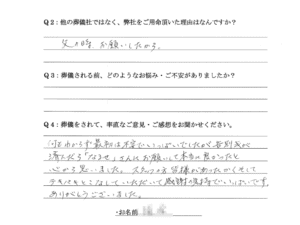 Q2：他の葬儀社ではなく、弊社をご用命頂いた理由はなんですか？
父の時、お願いしたから。
Q3：葬儀される前、どのようなお悩み・ご不安がありましたか？
Q4：葬儀をされて、率直なご意見・ご感想をお聞かせください。
何もわからず最初は不安でいっぱいでしたが告別式が
済んだら「なませ」さんにお願いして本当に良かったと
心から思いました。スタッフの皆様があたたかくそして
テキパキとこなしていただいて感謝の気持でいっぱいです。
ありがとうございました。
・お名前